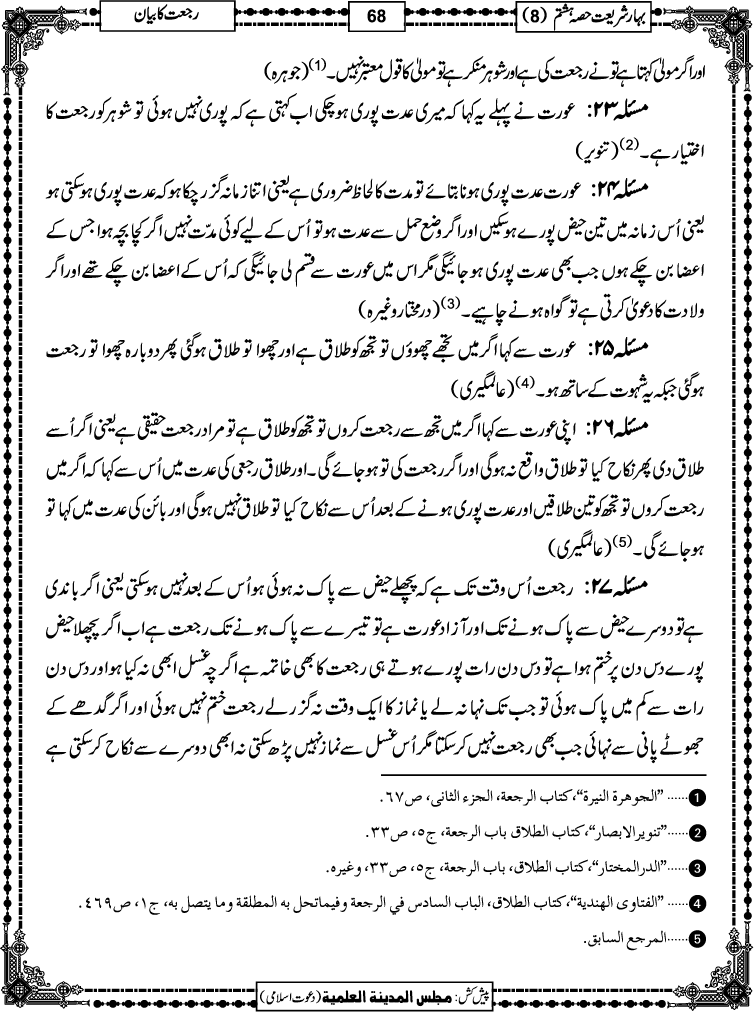 بہار شریعت حصہ ہشتم (8)
68
رجعت کا بیان
اور اگر مولیٰ کہتا ہے تو نے رجعت کی ہے اور شوہر منکر ہے تو مولیٰ کا قول معتبر نہیں۔(1) (جوہرہ)
مسئلہ ۲۳: عورت نے پہلے یہ کہا کہ میری عدت پوری ہوچکی اب کہتی ہے کہ پوری نہیں ہوئی تو شوہر کو رجعت کا
اختیار ہے۔(2) (تنویر)
مسئلہ ۲۴: عورت عدت پوری ہونا بتائے تو مدت کا لحاظ ضروری ہے یعنی اتنا زمانہ گزر چکا ہو کہ عدت پوری ہوسکتی ہو
یعنی اُس زمانہ میں تین حیض پورے ہوسکیں اور اگر وضع حمل سے عدت ہو تو اُس کے لیے کوئی مدّت نہیں اگر کچا بچہ ہوا جس کے
اعضا بن چکے ہوں جب بھی عدت پوری ہو جائیگی مگر اس میں عورت سے قسم لی جائیگی کہ اُس کے اعضا بن چکے تھے اور اگر
ولادت کا دعویٰ کرتی ہے تو گواہ ہونے چاہیے۔(3) (درمختار وغیرہ)
مسئلہ ۲۵: عورت سے کہا اگر میں تجھے چھوؤں تو تجھ کو طلاق ہے اور چھوا تو طلاق ہوگئی پھر دوبارہ چھوا تو رجعت
ہوگئی جبکہ یہ شہوت کے ساتھ ہو۔(4) (عالمگیری)
مسئلہ ۲۶: اپنی عورت سے کہا اگر میں تجھ سے رجعت کروں تو تجھ کو طلاق ہے تو مراد رجعت حقیقی ہے یعنی اگر اُسے
طلاق دی پھر نکاح کیا تو طلاق واقع نہ ہوگی اور اگر رجعت کی تو ہو جائے گی۔ اور طلاق رجعی کی عدت میں اُس سے کہا کہ اگر میں
رجعت کروں تو تجھ کو تین طلاقیں اور عدت پوری ہونے کے بعد اُس سے نکاح کیا تو طلاق نہیں ہوگی اور بائن کی عدت میں کہا تو
ہو جائے گی۔(5) (عالمگیری)
مسئلہ ۲۷: رجعت اُس وقت تک ہے کہ پچھلے حیض سے پاک نہ ہوئی ہو اُس کے بعد نہیں ہوسکتی یعنی اگر باندی
ہے تو دوسرے حیض سے پاک ہونے تک اور آزاد عورت ہے تو تیسرے سے پاک ہونے تک رجعت ہے اب اگر پچھلا حیض
پورے دس دن پر ختم ہوا ہے تو دس دن رات پورے ہوتے ہی رجعت کا بھی خاتمہ ہے اگرچہ غسل ابھی نہ کیا ہو اور دس دن
رات سے کم میں پاک ہوئی تو جب تک نہا نہ لے یا نماز کا ایک وقت نہ گزر لے رجعت ختم نہیں ہوئی اور اگر گدھے کے
جھوٹے پانی سے نہائی جب بھی رجعت نہیں کرسکتا مگر اُس غسل سے نماز نہیں پڑھ سکتی نہ ابھی دوسرے سے نکاح کرسکتی ہے
1 ...... "الجوهرة النيرة"، كتاب الرجعة، الجزء الثانی، ص٦٧.
2 ......"تنوير الابصار"، كتاب الطلاق باب الرجعة، ج٥، ص٣٣.
3 ......"الدرالمختار"، كتاب الطلاق، باب الرجعة، ج٥، ص٣٣، وغيره.
4 ...... "الفتاوى الهندية"، كتاب الطلاق، الباب السادس في الرجعة وفيماتحل به المطلقة وما يتصل به، ج١، ص٤٦٩.
5 ......المرجع السابق.
پیش کش: مجلس المدينة العلمية (دعوت اسلامی)